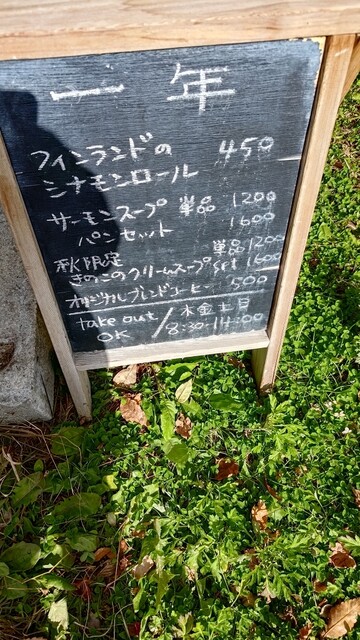 一年
フィンランドの
シナモンロール 450
サーモンスープ 単品 1200
パンセット 1600
秋限定 単品 1200
きのこのクリームスープ set 1600
オリジナルブレンドコーヒー 500
take out / 木金土日
OK / 8:30-14:00